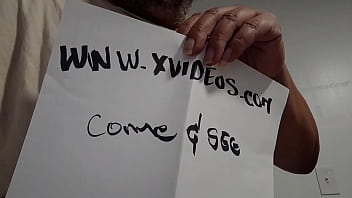 WNW.XVIDEOS.COM
Come & SEE